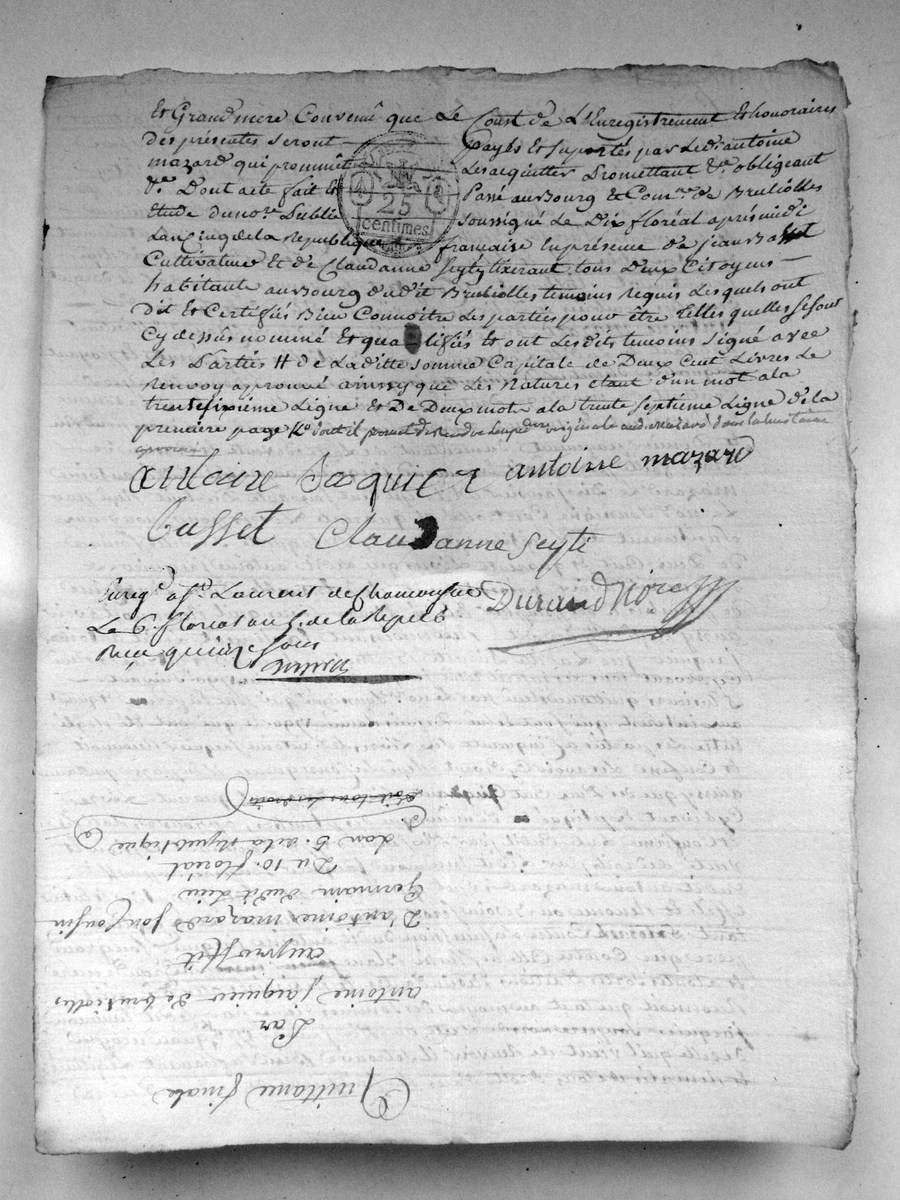 Et Grand mere Convenû que Le Coust de L'Enregistrement Et honoraires
des présentes Seront Payés Et Suportés par Le dt. antoine
mazard qui prommêt Les acquitter Promettant &a. obligeant
&a. Dont acte fait Et Passé au Bourg & Comne. de Brulliolles
Etude du nore. Public Soussigné Le Dix floréal après midi
Lan Cinq de la Republique française En presence de jean Ba
25
centimes
Cultivateur Et de Claudanne Seyty tixerant tous Deux Citoyens
habitants au Bourg dudit Brulliolles temoins Requis Lesquels ont
Dit Et Certifiés Bien Connoitre Les parties pour être telles quelles se sont
Cy dessus nommé Et qualifiés Et ont Lesdits temoins Signé avec
Les Parties # de Laditte Somme Capitale de Deux Cent Livres Le
Renvoy aprouvé ainssy que Les Ratures étant d'un mot a la
trente sixième Ligne Et De Deux mots a la trente Septieme Ligne de la
premiere page
antoine Jaquier antoine mazard
bussset Claudanne Seyti
Enregé. a St. Laurent de Chamousset Durand Nore
Le 6. floreal an 5. de la Repub
Reçu quinze Sous
Quittance finale
Par
antoine jaquier de brulioles
au proffit
D'antoine mazard son Cousin
Germain dudit Lieu
Du 10. floréal
Lan 5. de la Republique